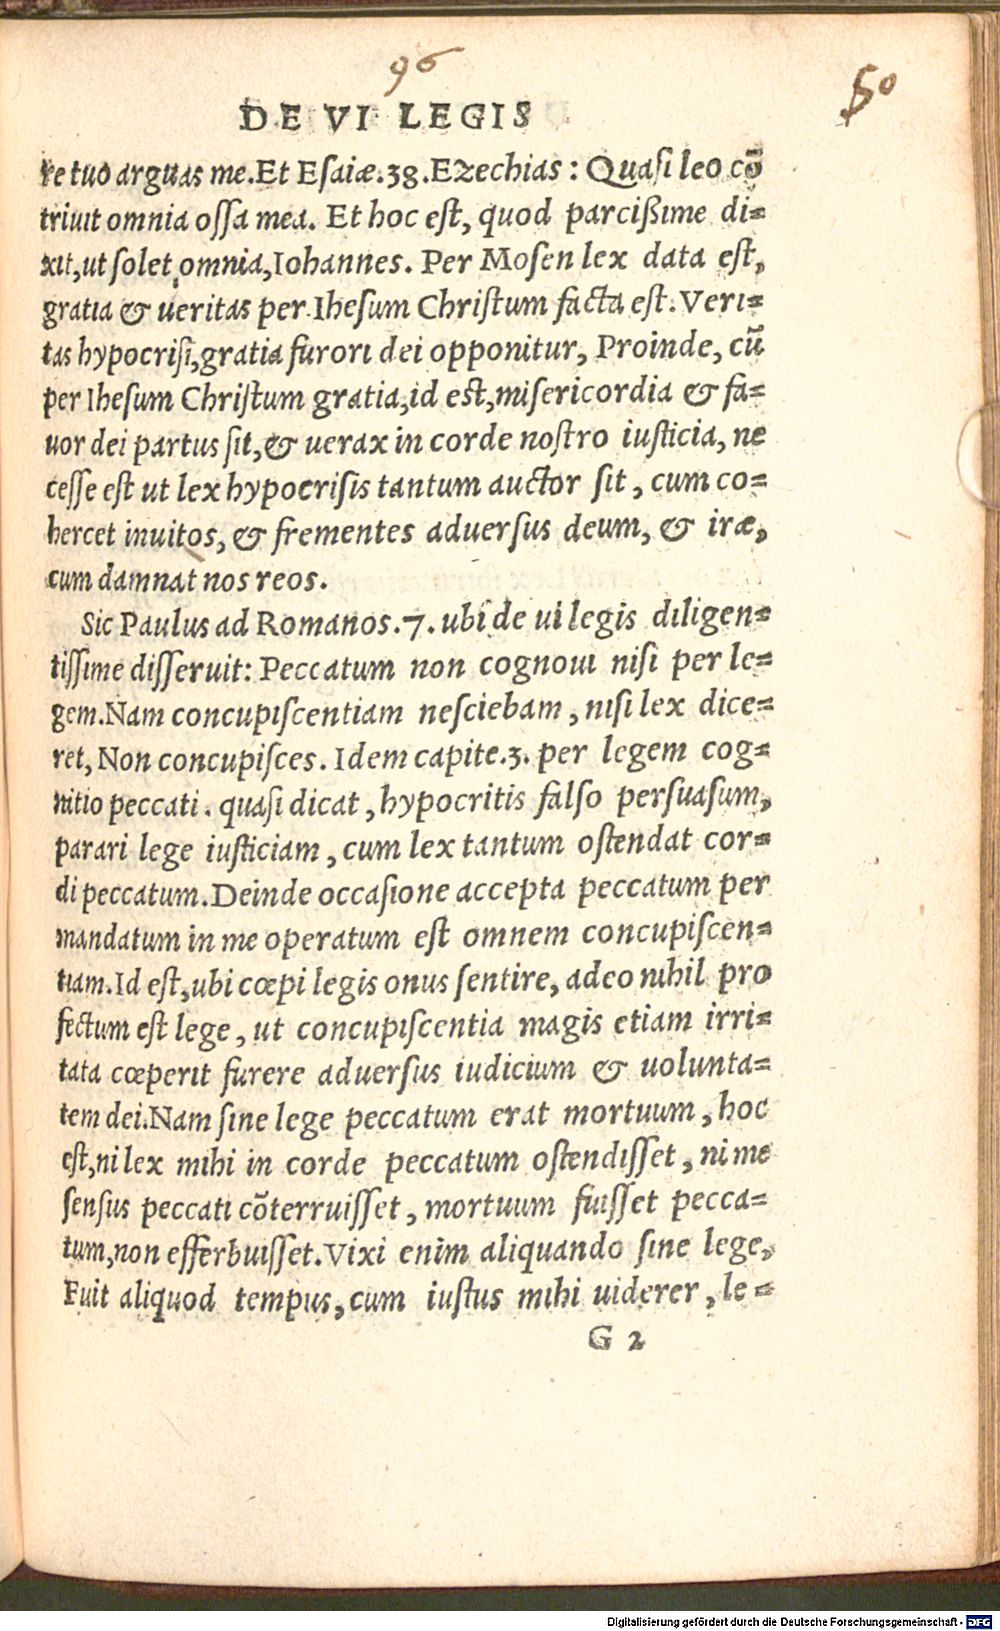 96
50
DE VI LEGIS
re tuo arguas me. Et Esaiæ. 38. Ezechias: Quasi leo cō
triuit omnia ossa mea. Et hoc est, quod parcißime di=
xit, ut solet omnia, Iohannes. Per Mosen lex data est,
gratia & ueritas per Ihesum Christum facta est. Veri=
tas hypocrisi, gratia furori dei opponitur, Proinde, cū
per Ihesum Christum gratia, id est, misericordia & fa=
uor dei partus sit, & uerax in corde nostro iusticia, ne
cesse est ut lex hypocrisis tantum auctor sit, cum co=
hercet inuitos, & frementes aduersus deum, & iræ,
cum damnat nos reos.
Sic Paulus ad Romanos. 7. ubi de ui legis diligen=
tissime disseruit: Peccatum non cognoui nisi per le=
gem. Nam concupiscentiam nesciebam, nisi lex dice=
ret, Non concupisces. Idem capite. 3. per legem cog=
nitio peccati. quasi dicat, hypocritis falso persuasum,
parari lege iusticiam, cum lex tantum ostendat cor=
di peccatum. Deinde occasione accepta peccatum per
mandatum in me operatum est omnem concupiscen=
tiam. Id est, ubi cœpi legis onus sentire, adeo nihil pro
fectum est lege, ut concupiscentia magis etiam irri=
tata cœperit furere aduersus iudicium & uolunta=
tem dei. Nam sine lege peccatum erat mortuum, hoc
est, ni lex mihi in corde peccatum ostendisset, ni me
sensus peccati cōterruisset, mortuum fuisset pecca=
tum, non efferbuisset. Vixi enim aliquando sine lege,
Fuit aliquod tempus, cum iustus mihi uiderer, le=
G 2
Digitalisierung gefördert durch die Deutsche Forschungsgemeinschaft - DFG